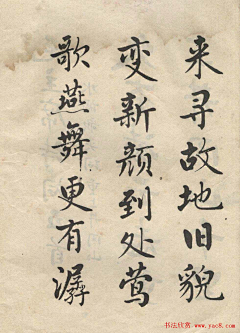 来寻故地旧貌
变新颜到处莺
歌燕舞更有潺
书法欣赏
www.yac8.com